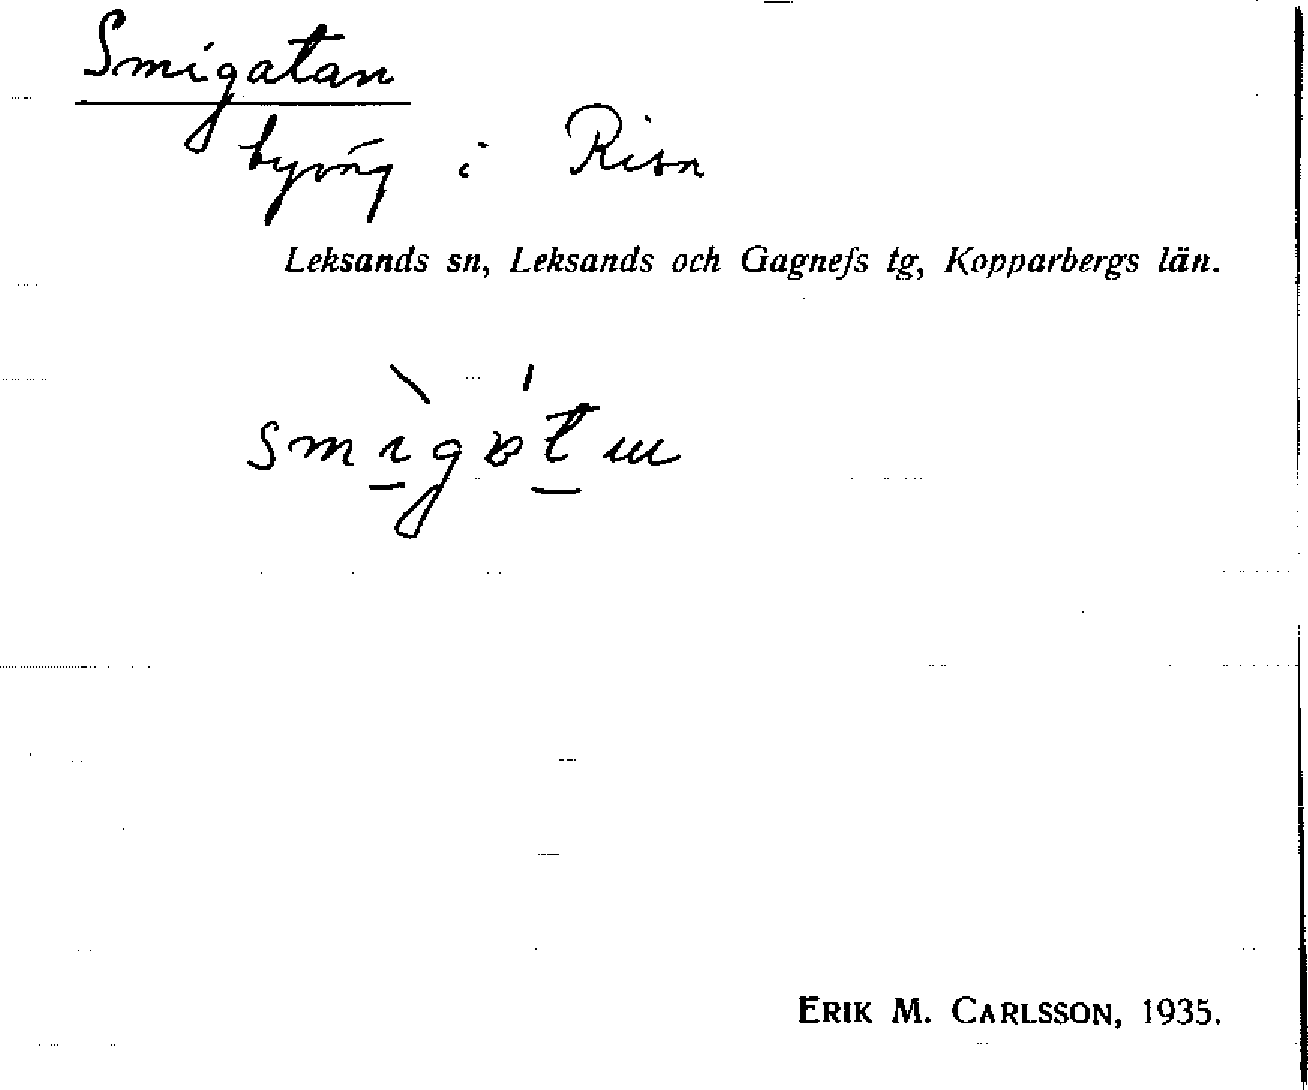 Smigatan
byväg i Risa
Leksands sn, Leksands och Gagnefs tg, Kopparbergs län.
ERIK M. CARLSSON, 1935.